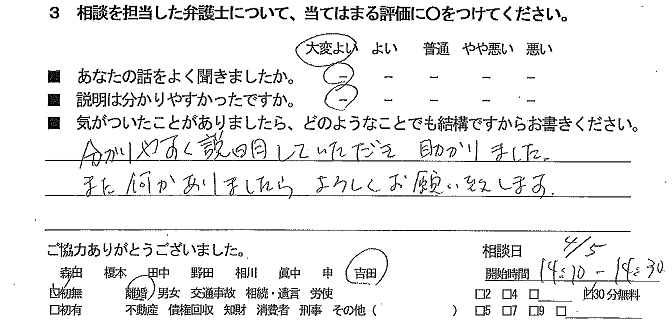 3 相談を担当した弁護士について、当てはまる評価に〇をつけてください。
大変よい よい 普通 やや悪い 悪い
■ あなたの話をよく聞きましたか。 － － － － －
■ 説明は分かりやすかったですか。 － － － － －
■ 気がついたことがありましたら、どのようなことでも結構ですからお書きください。
分かりやすく説明していただき 助かりました。
また何かありましたら よろしくお願いいたします。
ご協力ありがとうございました。 相談日 4/5
森田 榎本 田中 野田 相川 眞中 申 吉田 開始時間 14:10 - 14:30
☑初無 離婚 男女 交通事故 相続・遺言 労使 □2 □4 □ ☑30分無料
□初有 不動産 債権回収 知財 消費者 刑事 その他（ ） □5 □7 □9 □